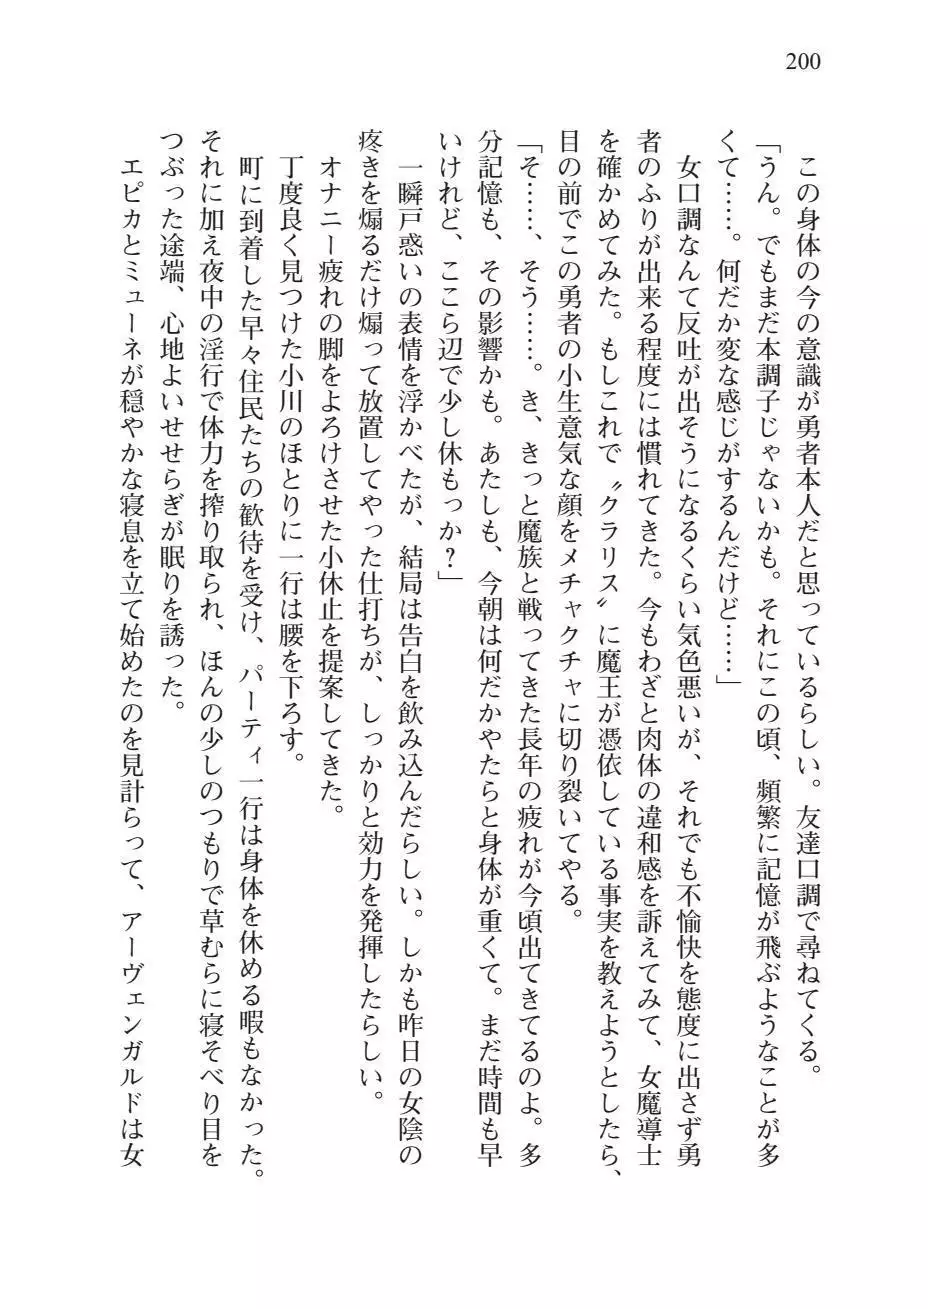 200
この身体の今の意識が勇者本人だと思っているらしい。友達口調で尋ねてくる。
「うん。でもまだ本調子じゃないかも。それにこの頃、頻繁に記憶が飛ぶようなことが多
くて……。何だか変な感じがするんだけど……」
女口調なんて反吐が出そうになるくらい気色悪いが、それでも不愉快を態度に出さず勇
者のふりが出来る程度には慣れてきた。今もわざと肉体の違和感を訴えてみて、女魔導士
を確かめてみた。もしこれで〝クラリス〟に魔王が憑依している事実を教えようとしたら、
目の前でこの勇者の小生意気な顔をメチャクチャに切り裂いてやる。
「そ……、そう……。き、きっと魔族と戦ってきた長年の疲れが今頃出てきてるのよ。多
分記憶も、その影響かも。あたしも、今朝は何だかやたらと身体が重くて。まだ時間も早
いけれど、ここら辺で少し休もっか？」
一瞬戸惑いの表情を浮かべたが、結局は告白を飲み込んだらしい。しかも昨日の女陰の
疼きを煽るだけ煽って放置してやった仕打ちが、しっかりと効力を発揮したらしい。
オナニー疲れの脚をよろけさせた小休止を提案してきた。
丁度良く見つけた小川のほとりに一行は腰を下ろす。
町に到着した早々住民たちの歓待を受け、パーティ一行は身体を休める暇もなかった。
それに加え夜中の淫行で体力を搾り取られ、ほんの少しのつもりで草むらに寝そべり目を
つぶった途端、心地よいせせらぎが眠りを誘った。
エピカとミューネが穏やかな寝息を立て始めたのを見計らって、アーヴェンガルドは女